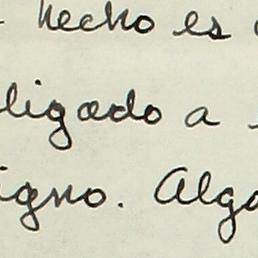 hecho es
ligado a
igno. Alga